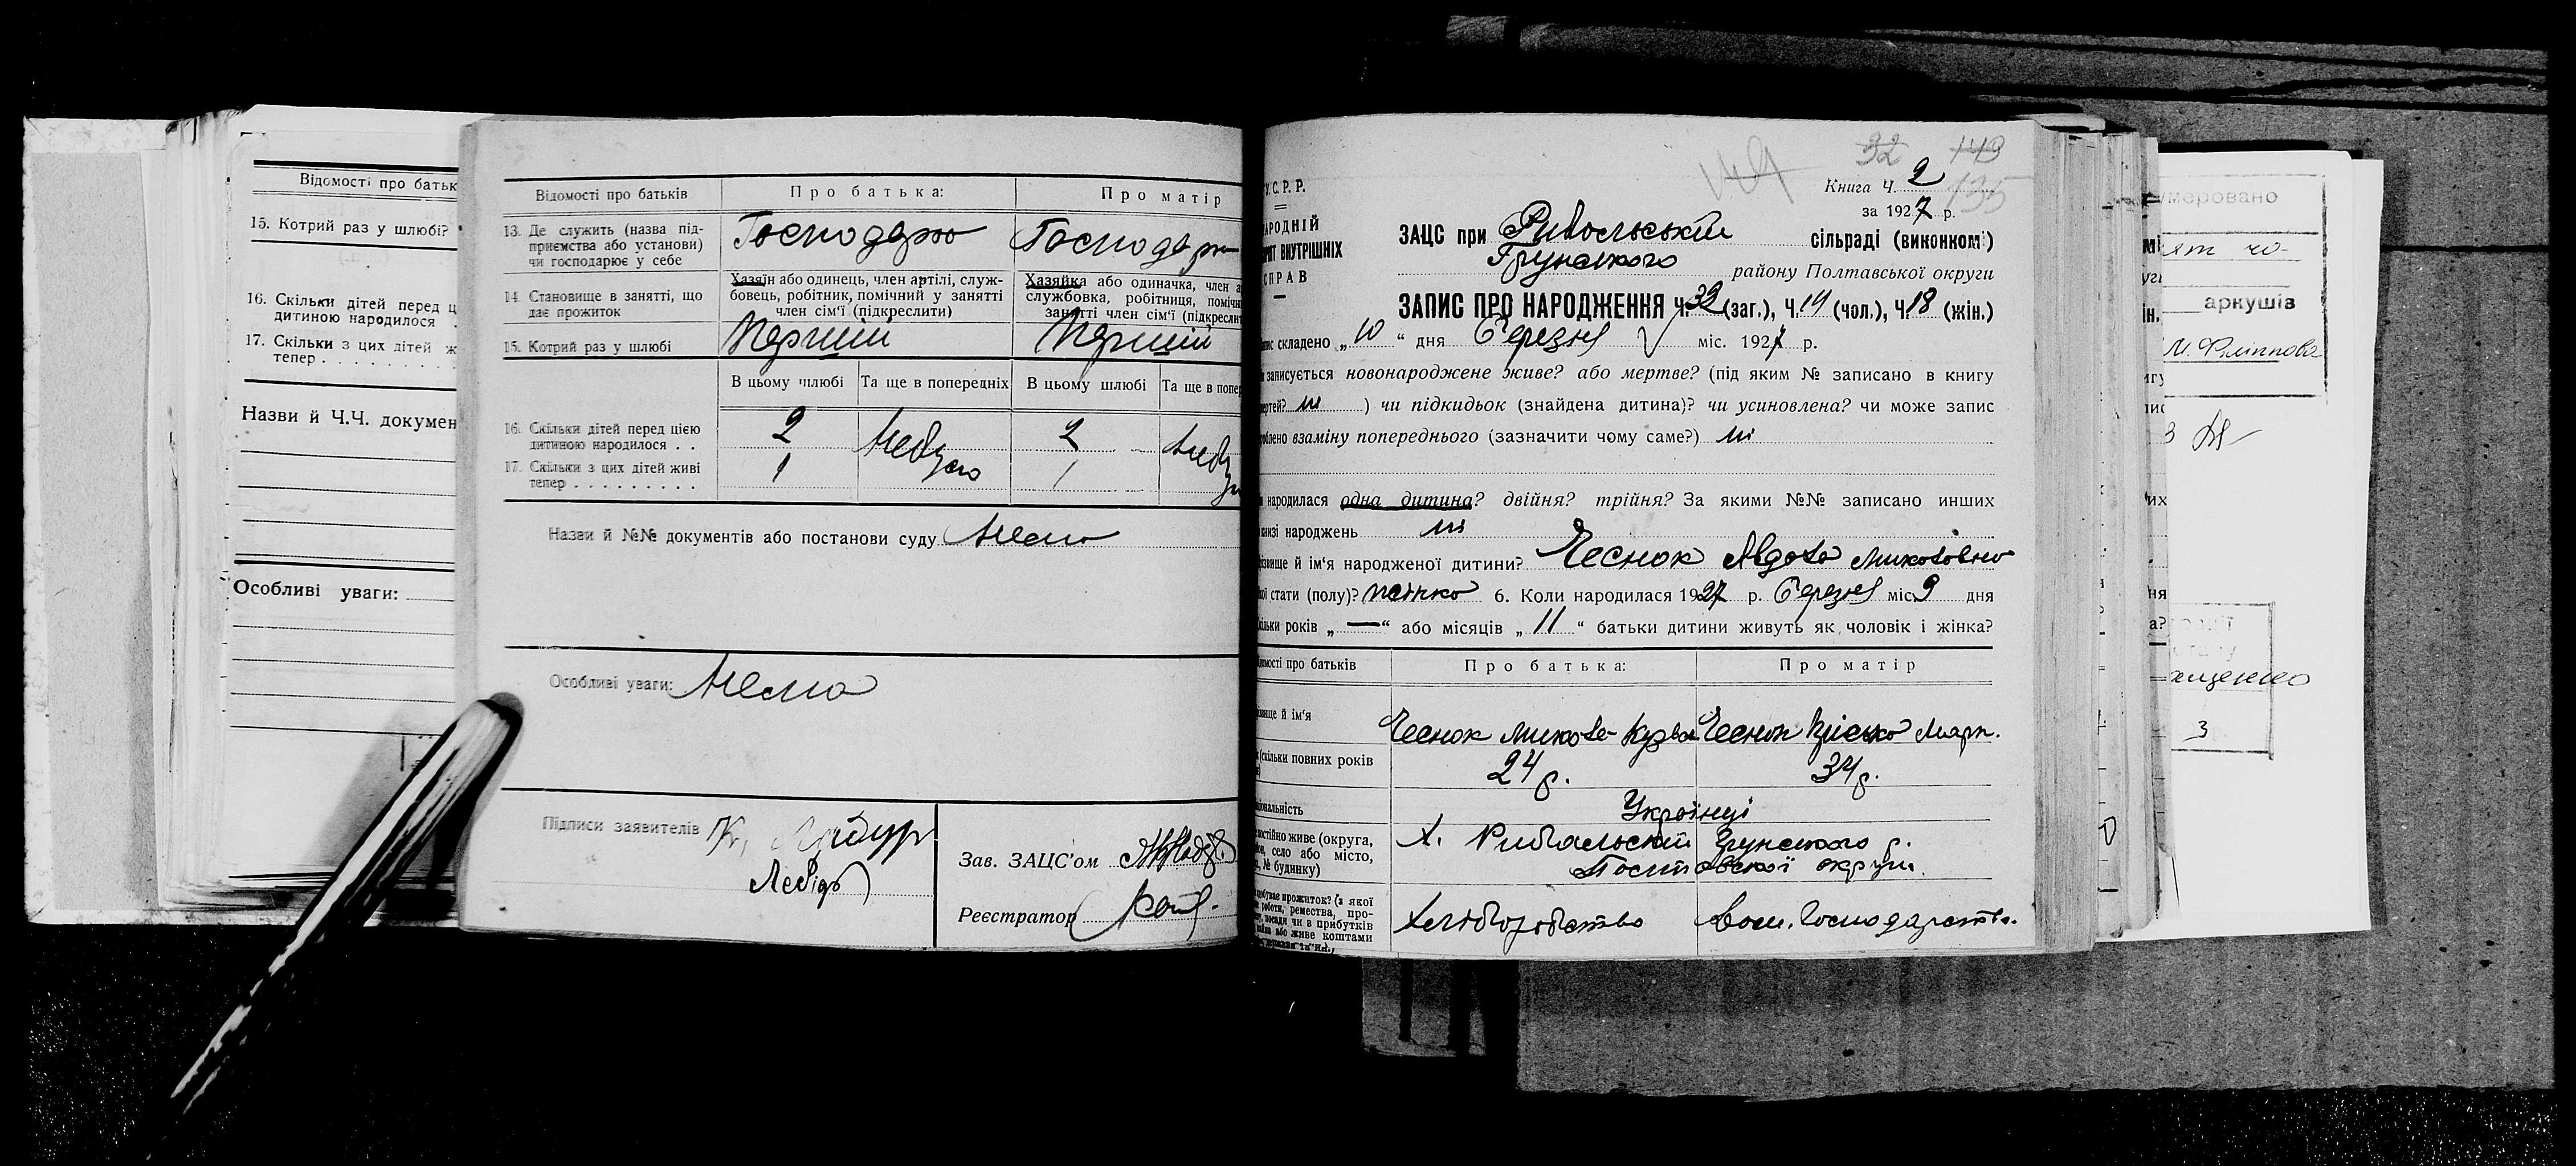 Відомості про батьк
15. Котрий раз у шлюбі?
16. Скільки дітей перед ц
дитиною народилося .
17. Скільки з цих дітей ж
тепер . . . . . . . .
Назви й Ч.Ч. докумен
Особливі уваги:
Відомості про батьків
Про батька:
Про матір
13. Де служить (назва під-
приємства або установи)
чи господарює у себе
Господарю
Господарю
14. Становище в занятті, що
дає прожиток
Хазяїн або одинець, член артілі, служ-
бовець, робітник, помічний у занятті
член сім'ї (підкреслити)
Хазяйка або одиначка, член а
службовка, робітниця, помічн
занятті член сім'ї (підкресли
15. Котрий раз у шлюбі
Перший
Перший
В цьому шлюбі
Та ще в попередніх
В цьому шлюбі
Та ще в попер
16. Скільки дітей перед цією
дитиною народилося . .
2
Небуло
2
17. Скільки з цих дітей живі
тепер . . . . . . . . .
1
1
Назви й №№ документів або постанови суду Нема
Особливі уваги: Нема
Підписи заявителів
Лебідь
Зав. ЗАЦС'ом
Реєстратор
32 149
Книга Ч. 2 135
за 1927 р.
У.С.Р.Р.
АРОДНІЙ
ВНУТРІШНІХ
СПРАВ
ЗАЦС при Рибальській сільраді (виконкомі)
Грунського району Полтавської округи
ЗАПИС ПРО НАРОДЖЕННЯ Ч. 32 (заг.), Ч. 14 (чол.), Ч. 18 (жін.)
пис складено „10“ дня Березня міс. 1927 р.
и записується новонароджене живе? або мертве? (під яким № записано в книгу
ертей? ні ) чи підкидьок (знайдена дитина)? чи усиновлена? чи може запис
роблено взаміну попереднього (зазначити чому саме?) ні
и народилася одна дитина? двійня? трійня? За якими №№ записано инших
книзі народжень ні
звище й ім'я народженої дитини? Чеснок Авдотя Миколовна
кої стати (полу)? жінка 6. Коли народилася 1927 р. Березня міс. 9 дня
кільки років „—“ або місяців „11“ батьки дитини живуть як чоловік і жінка?
домості про батьків
Про батька:
Про матір
звище й ім'я
Чеснок Микола
Чеснок Марк.
(скільки повних років
24 р.
34 р.
ціональність
Українці
постійно живе (округа,
село або місто,
№ будинку)
х. Рибальский Грунського р.
округи.
добуває прожиток? (з якої
роботи, ремества, про-
посади чи в прибутків
або живе коштами
Хліборобство
Господарство.
умеровано
аркушів
М. Філіппова
3